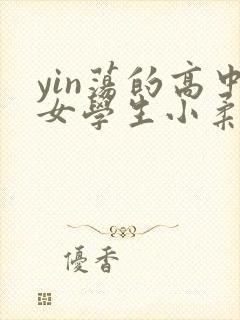 yin蕩的高中
女學生小柔
優香